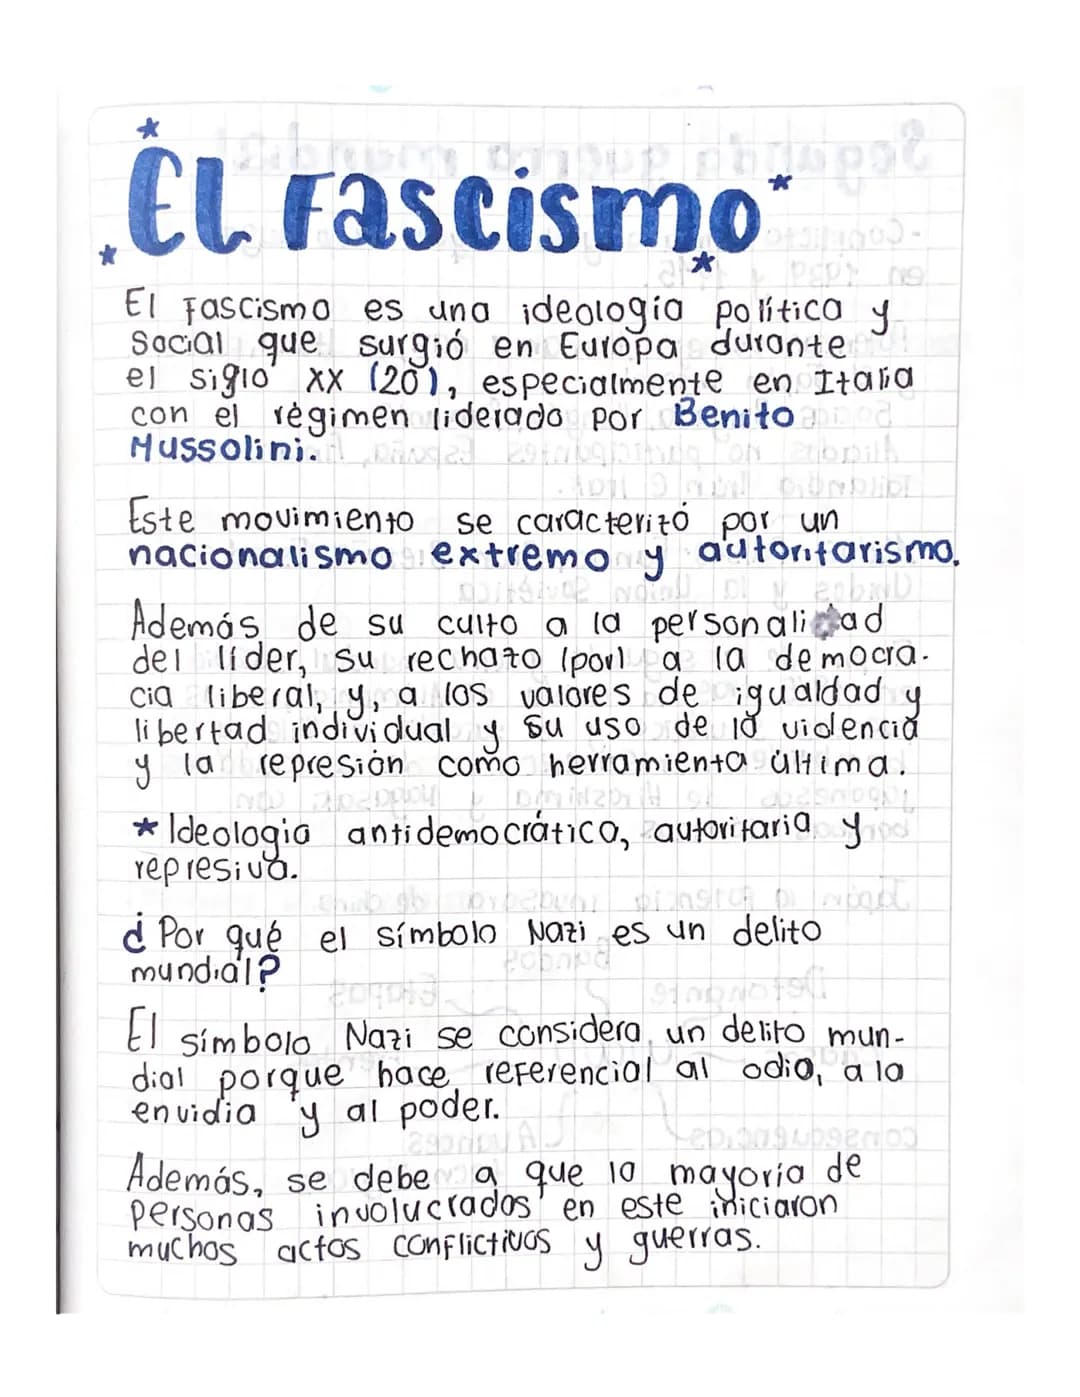 El Fascismo
El Fascismo es una ideología política y
Social que surgió en Europa durante
el siglo XX (20), especialmente en Italia
con el régimen liderado por Benito
Mussolini.
Este movimiento se caracterizó por un
nacionalismo extremo y autoritarismo.
Además de su culto a la personalidad
del líder, su rechazo (por) a la democra-
cia liberal, y, a los valores de igualdad y
libertad individual y su uso de la violencia
y la represión como herramienta última.
* Ideologia antidemocrática, autoritaria y
represiva.
¿Por qué el símbolo Nazi es un delito
mundial?
El símbolo Nazi se considera un delito mun-
dial porque hace referencial al odio, a la
envidia y al poder.
Además, se debe a que la mayoría de
personas involucrados en este iniciaron
muchos actos conflictivos y guerras.